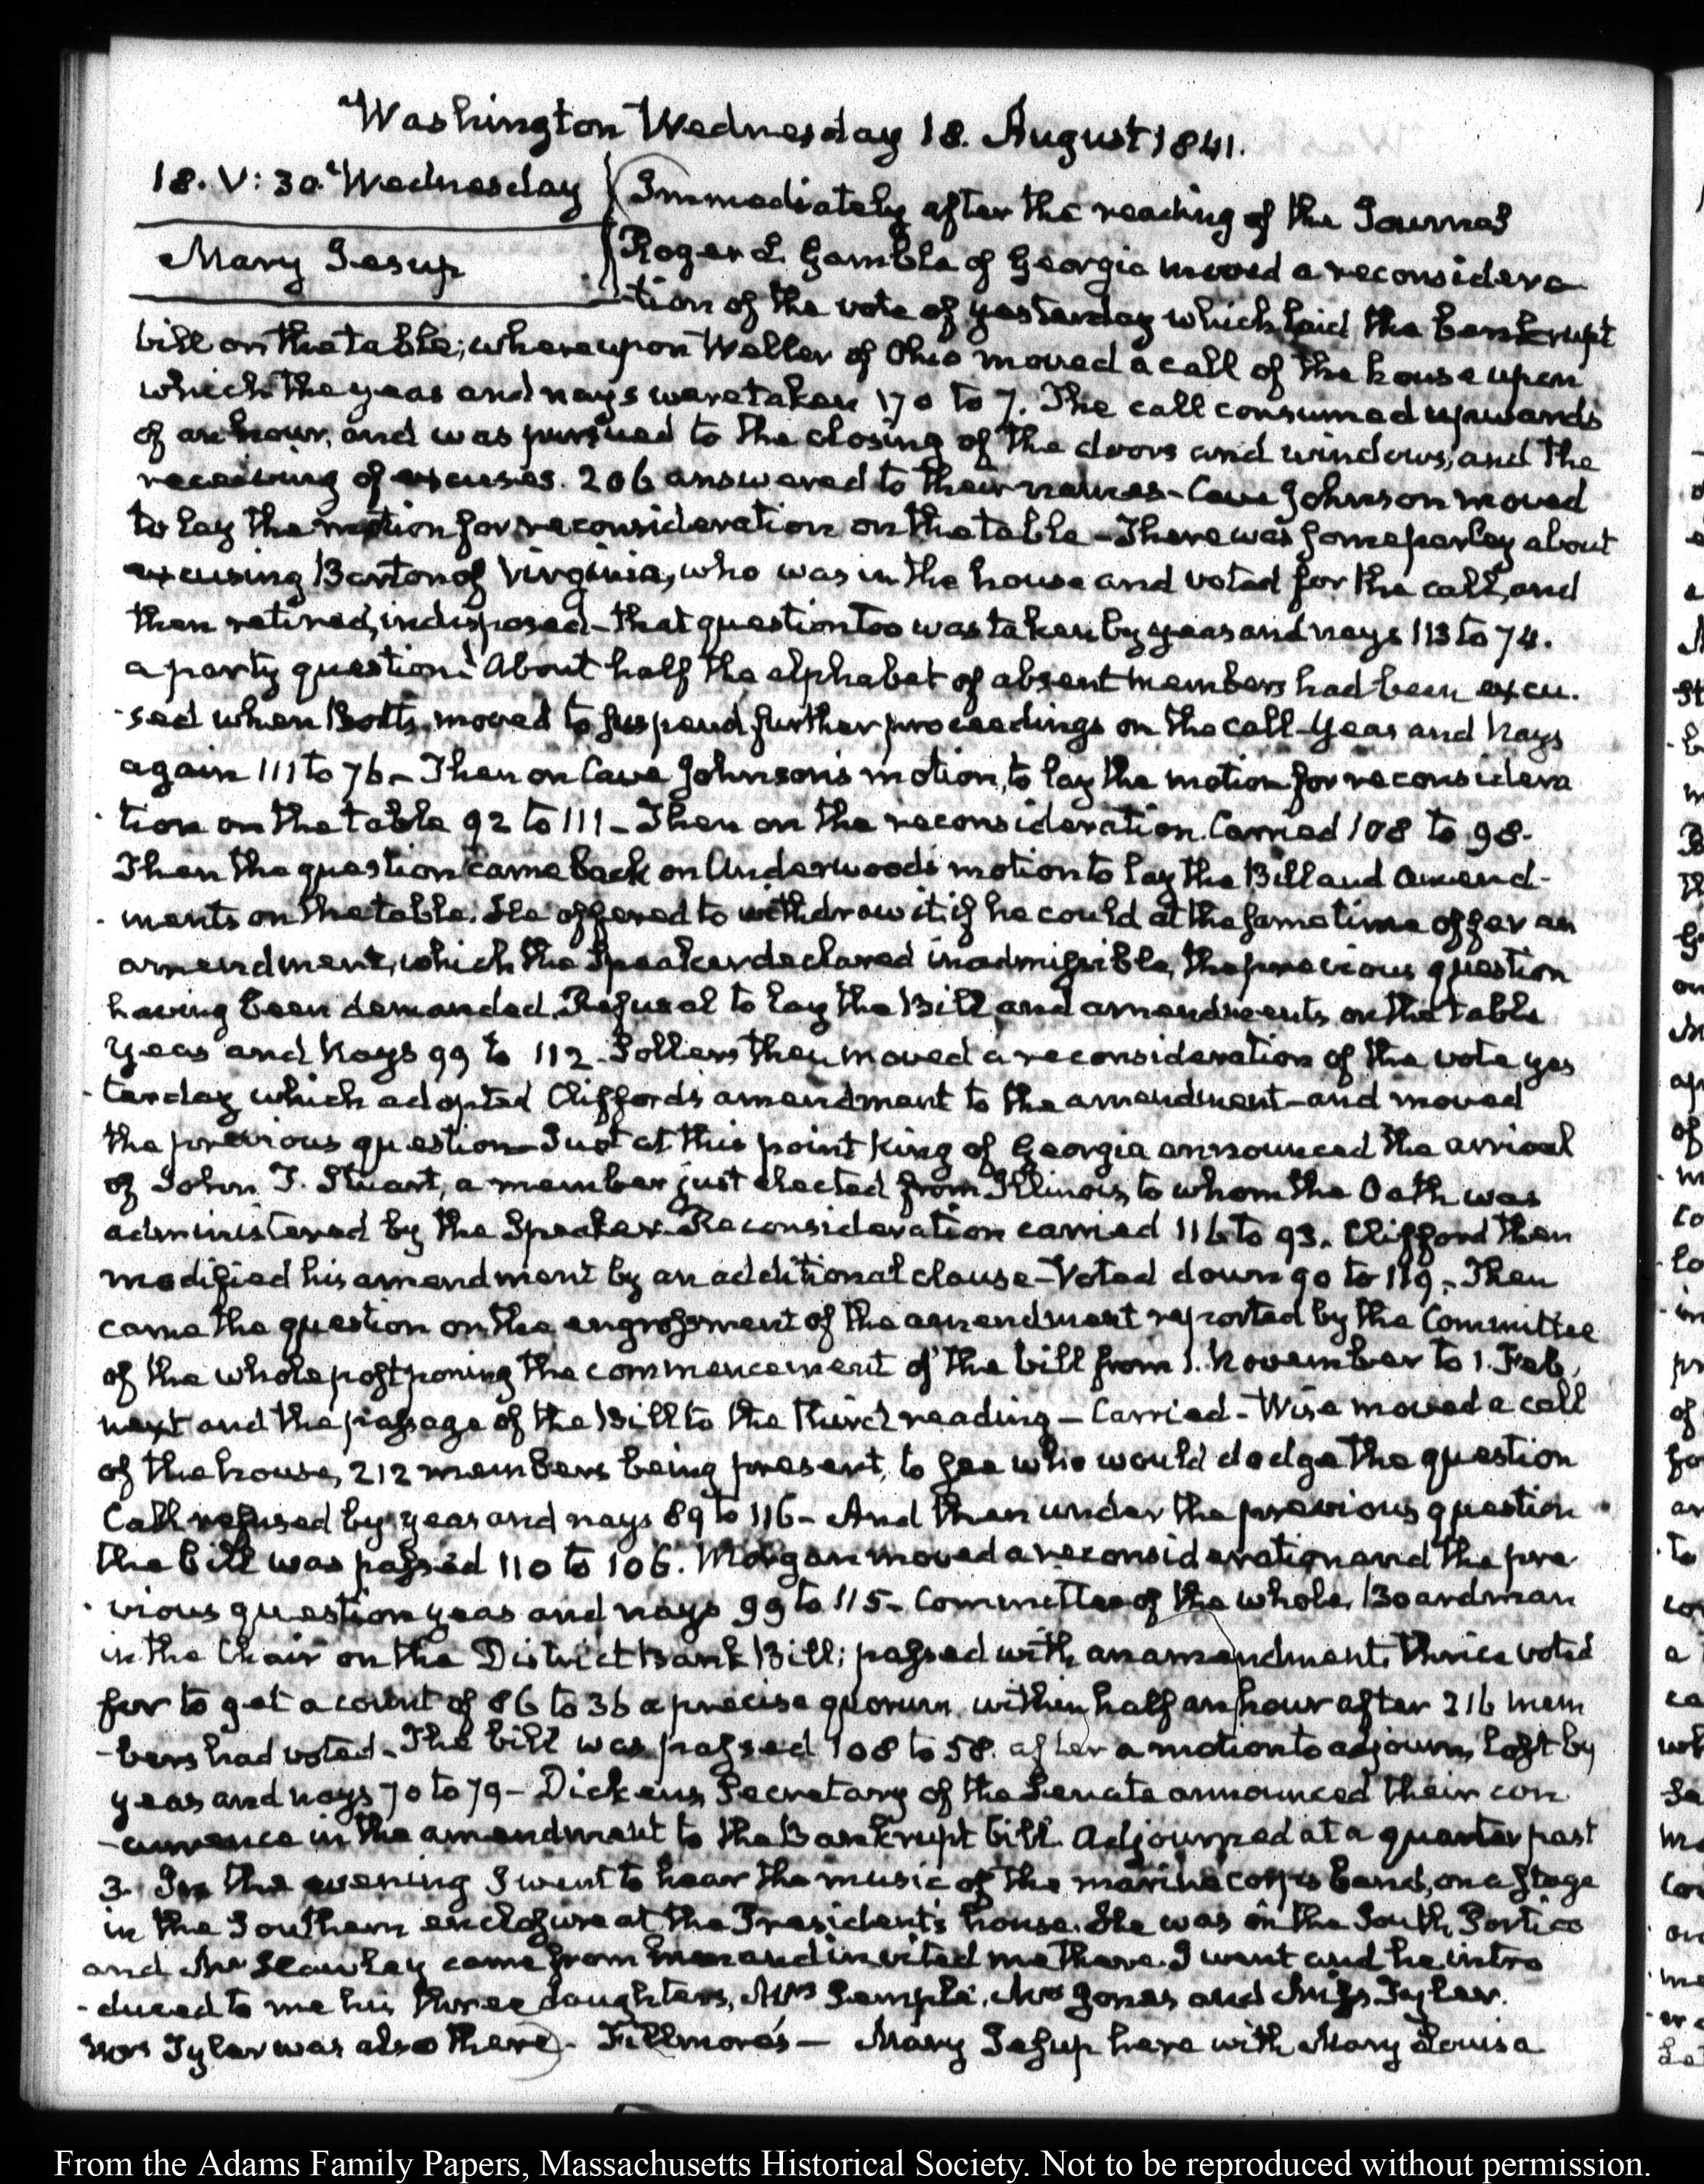 Washington Wednesday 18. August 1841.
18. V: 30. Wednesday
Mary Jesup
Immediately after the reading of the Journal
Roger L. Gamble of Georgia moved a reconsidera
tion of the vote of yesterday which laid the bankrupt
bill on the table; whereupon Weller of Ohio moved a call of the house upon
which the yeas and nays were taken 170 to 7. The call consumed upwards
of an hour, and was pursued to the closing of the doors and windows, and the
receiving of excuses. 206 answered to their names - Cave Johnson moved
to lay the motion for reconsideration on the table - There was some parley about
excusing Barton of Virginia, who was in the house and voted for the call, and
then retired, indisposed - that question too was taken by yeas and nays 113 to 74.
a party question! About half the alphabet of absent members had been excu.
-sed when Botts moved to suspend further proceedings on the call - Yeas and Nays
again 111 to 76 - Then on Cave Johnson's motion, to lay the motion for reconsidera
-tion on the table 92 to 111 - Then on the reconsideration. Carried 108 to 98.
Then the question came back on Underwood's motion to lay the Bill and amend-
-ments on the table. He offered to withdraw it, if he could at the same time offer an
amendment, which the Speaker declared inadmissible, the previous question
having been demanded. Refusal to lay the Bill and amendments on the table
Yeas and Nays 99 to 112 - Sollers then moved a reconsideration of the vote yes
-terday which adopted Clifford's amendment to the amendment - and moved
the previous question - Just at this point King of Georgia announced the arrival
of John T. Stuart, a member just elected from Illinois, to whom the Oath was
administered by the Speaker. Reconsideration carried 116 to 93. Clifford then
modified his amendment by an additional clause - Voted down 90 to 119. Then
came the question on the engrossment of the amendment reported by the Committee
of the whole postponing the commencement of the bill from 1. November to 1. Feb,
next and the passage of the Bill to the third reading - Carried - Wise moved a call
of the house, 212 members being present, to see who would dodge the question
Call refused by yeas and nays 89 to 116 - And then under the previous question
the bill was passed 110 to 106. Morgan moved a reconsideration and the pre
-vious question yeas and nays 99 to 115 - Committee of the whole, Boardman
in the Chair on the District Bank Bill; passed with an amendment. thrice voted
for to get a count of 86 to 36 a precise quorum, within half an hour after 216 mem
-bers had voted. The bill was passed 108 to 58. after a motion to adjourn, lost by
yeas and nays 70 to 79 - Dickens Secretary of the Senate announced their con
-currence in the amendment to the Bankrupt bill. Adjourned at a quarter past
3. In the evening I went to hear the music of the marine corps band, on a stage
in the Southern enclosure at the President's house. He was on the South Portico
and Mr came from him and invited me there. I went and he intro
-duced to me his three daughters, Mrs Semple, Mrs Jones and Miss Tyler.
Mrs Tyler was also there) - Fillmore's - Mary Jesup here with Mary Louisa
From the Adams Family Papers, Massachusetts Historical Society. Not to be reproduced without permission.